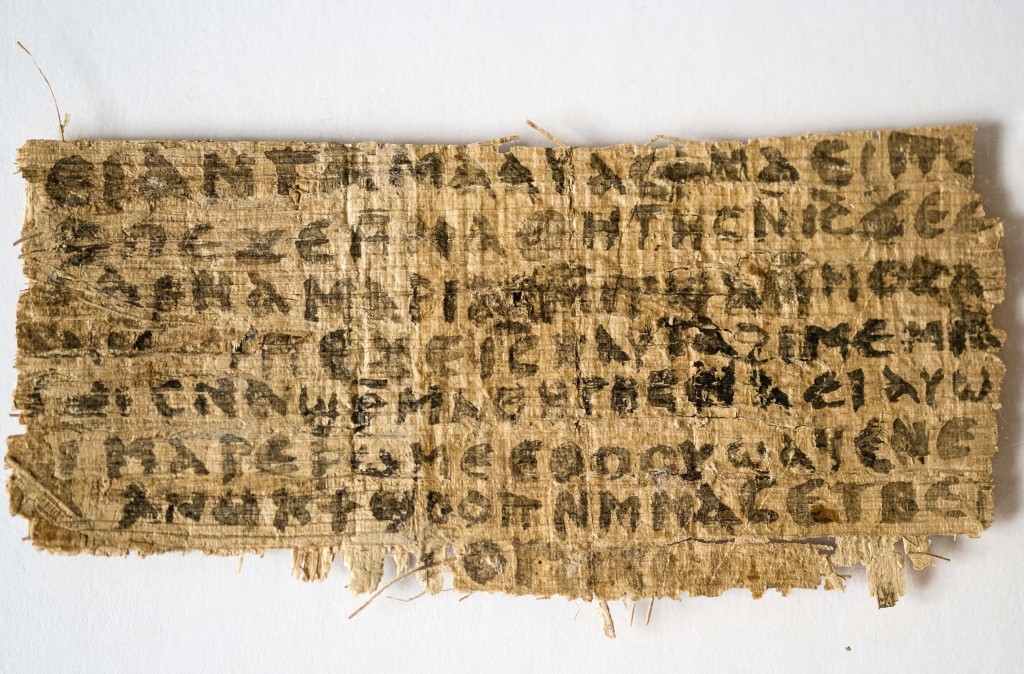 ⲉⲓ ⲁⲛ ⲧⲁⲙⲁⲁⲩ ⲁⲥϯ ⲛⲁⲉⲓ ⲡ
ⲡⲉϫⲉ ⲙⲙⲁⲑⲏⲧⲏⲥ ⲛⲓ̅ⲥ̅ ϫⲉ ⲥ
ⲁⲣⲛⲁ ⲙⲁⲣⲓⲁⲙ
ⲡⲉϫⲉ ⲓ̅ⲥ̅ ⲛⲁⲩ ⲧⲁϩⲓⲙⲉ ⲙⲛ
ⲥⲛⲁϣⲣⲙⲁⲑⲏⲧⲏⲥ ⲛⲁⲉⲓ ⲁⲩⲱ
ⲓ ⲙⲁⲣⲉⲣⲱⲙⲉ ⲉⲑⲟⲟⲩ ϣⲁϥⲉ ⲛⲉ
ⲁⲛⲟⲕ ϯϣⲟⲟⲡ ⲛⲙⲙⲁⲥ ⲉⲧⲃⲉ